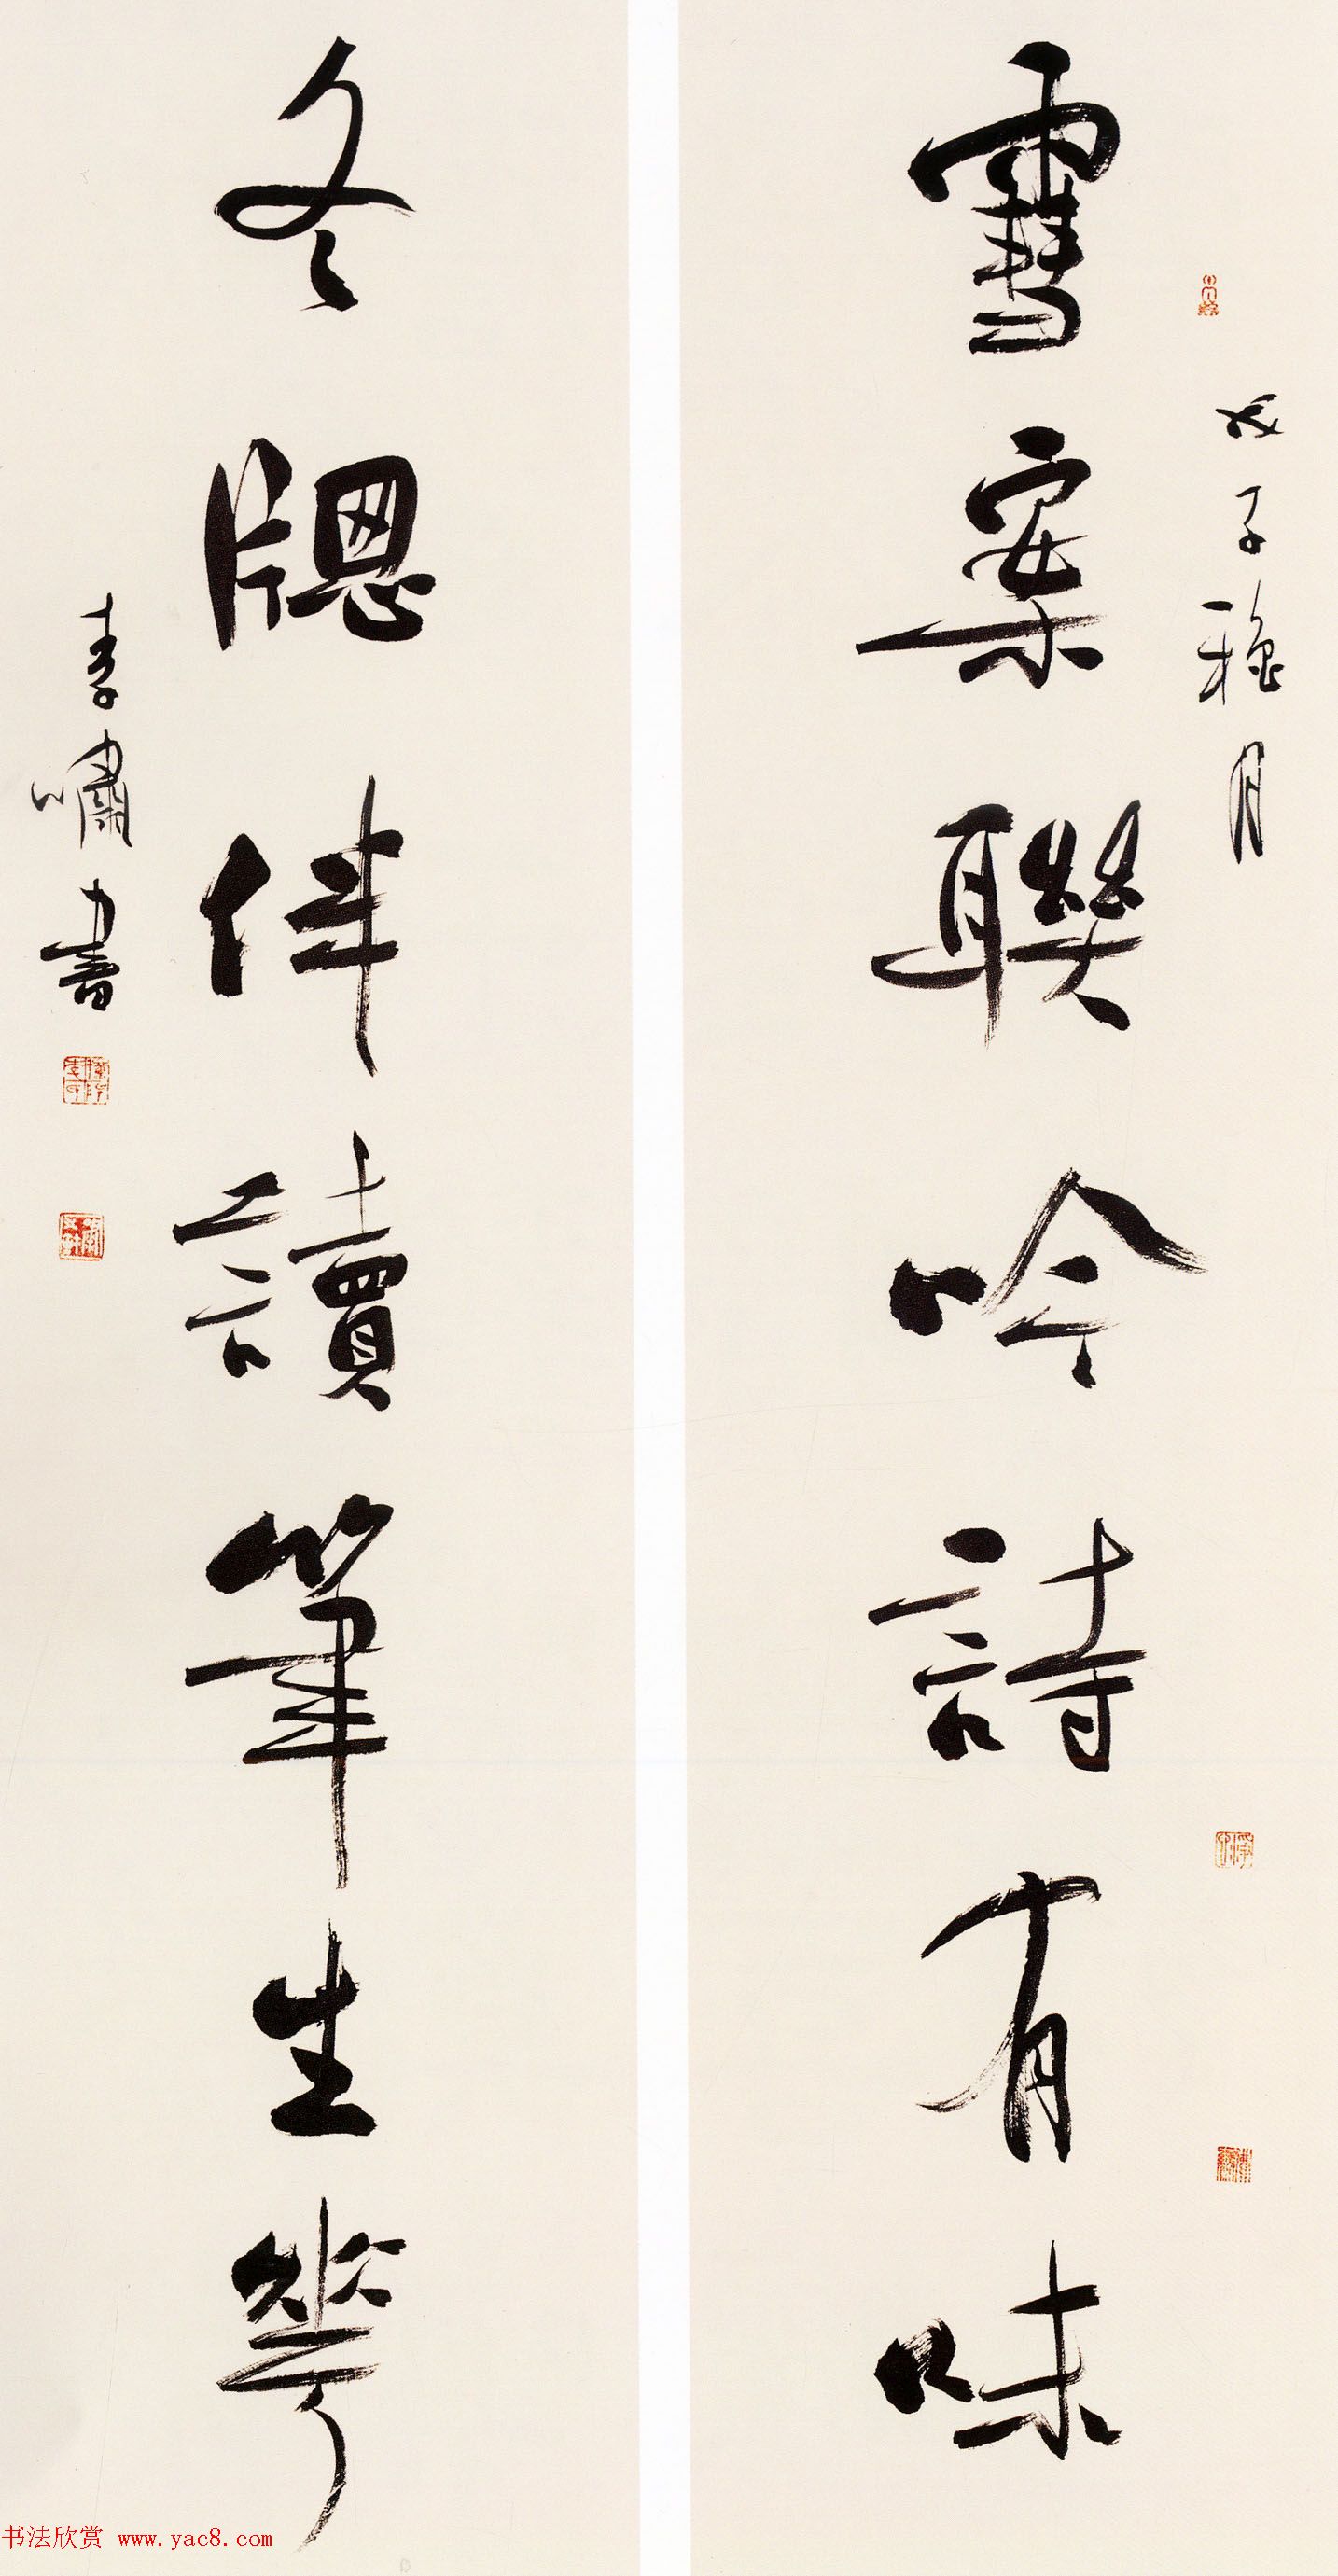 戊子穐月
雪案聯吟詩有味
冬牎伴讀筆生華
李嘯書
书法欣赏 www.yac8.com